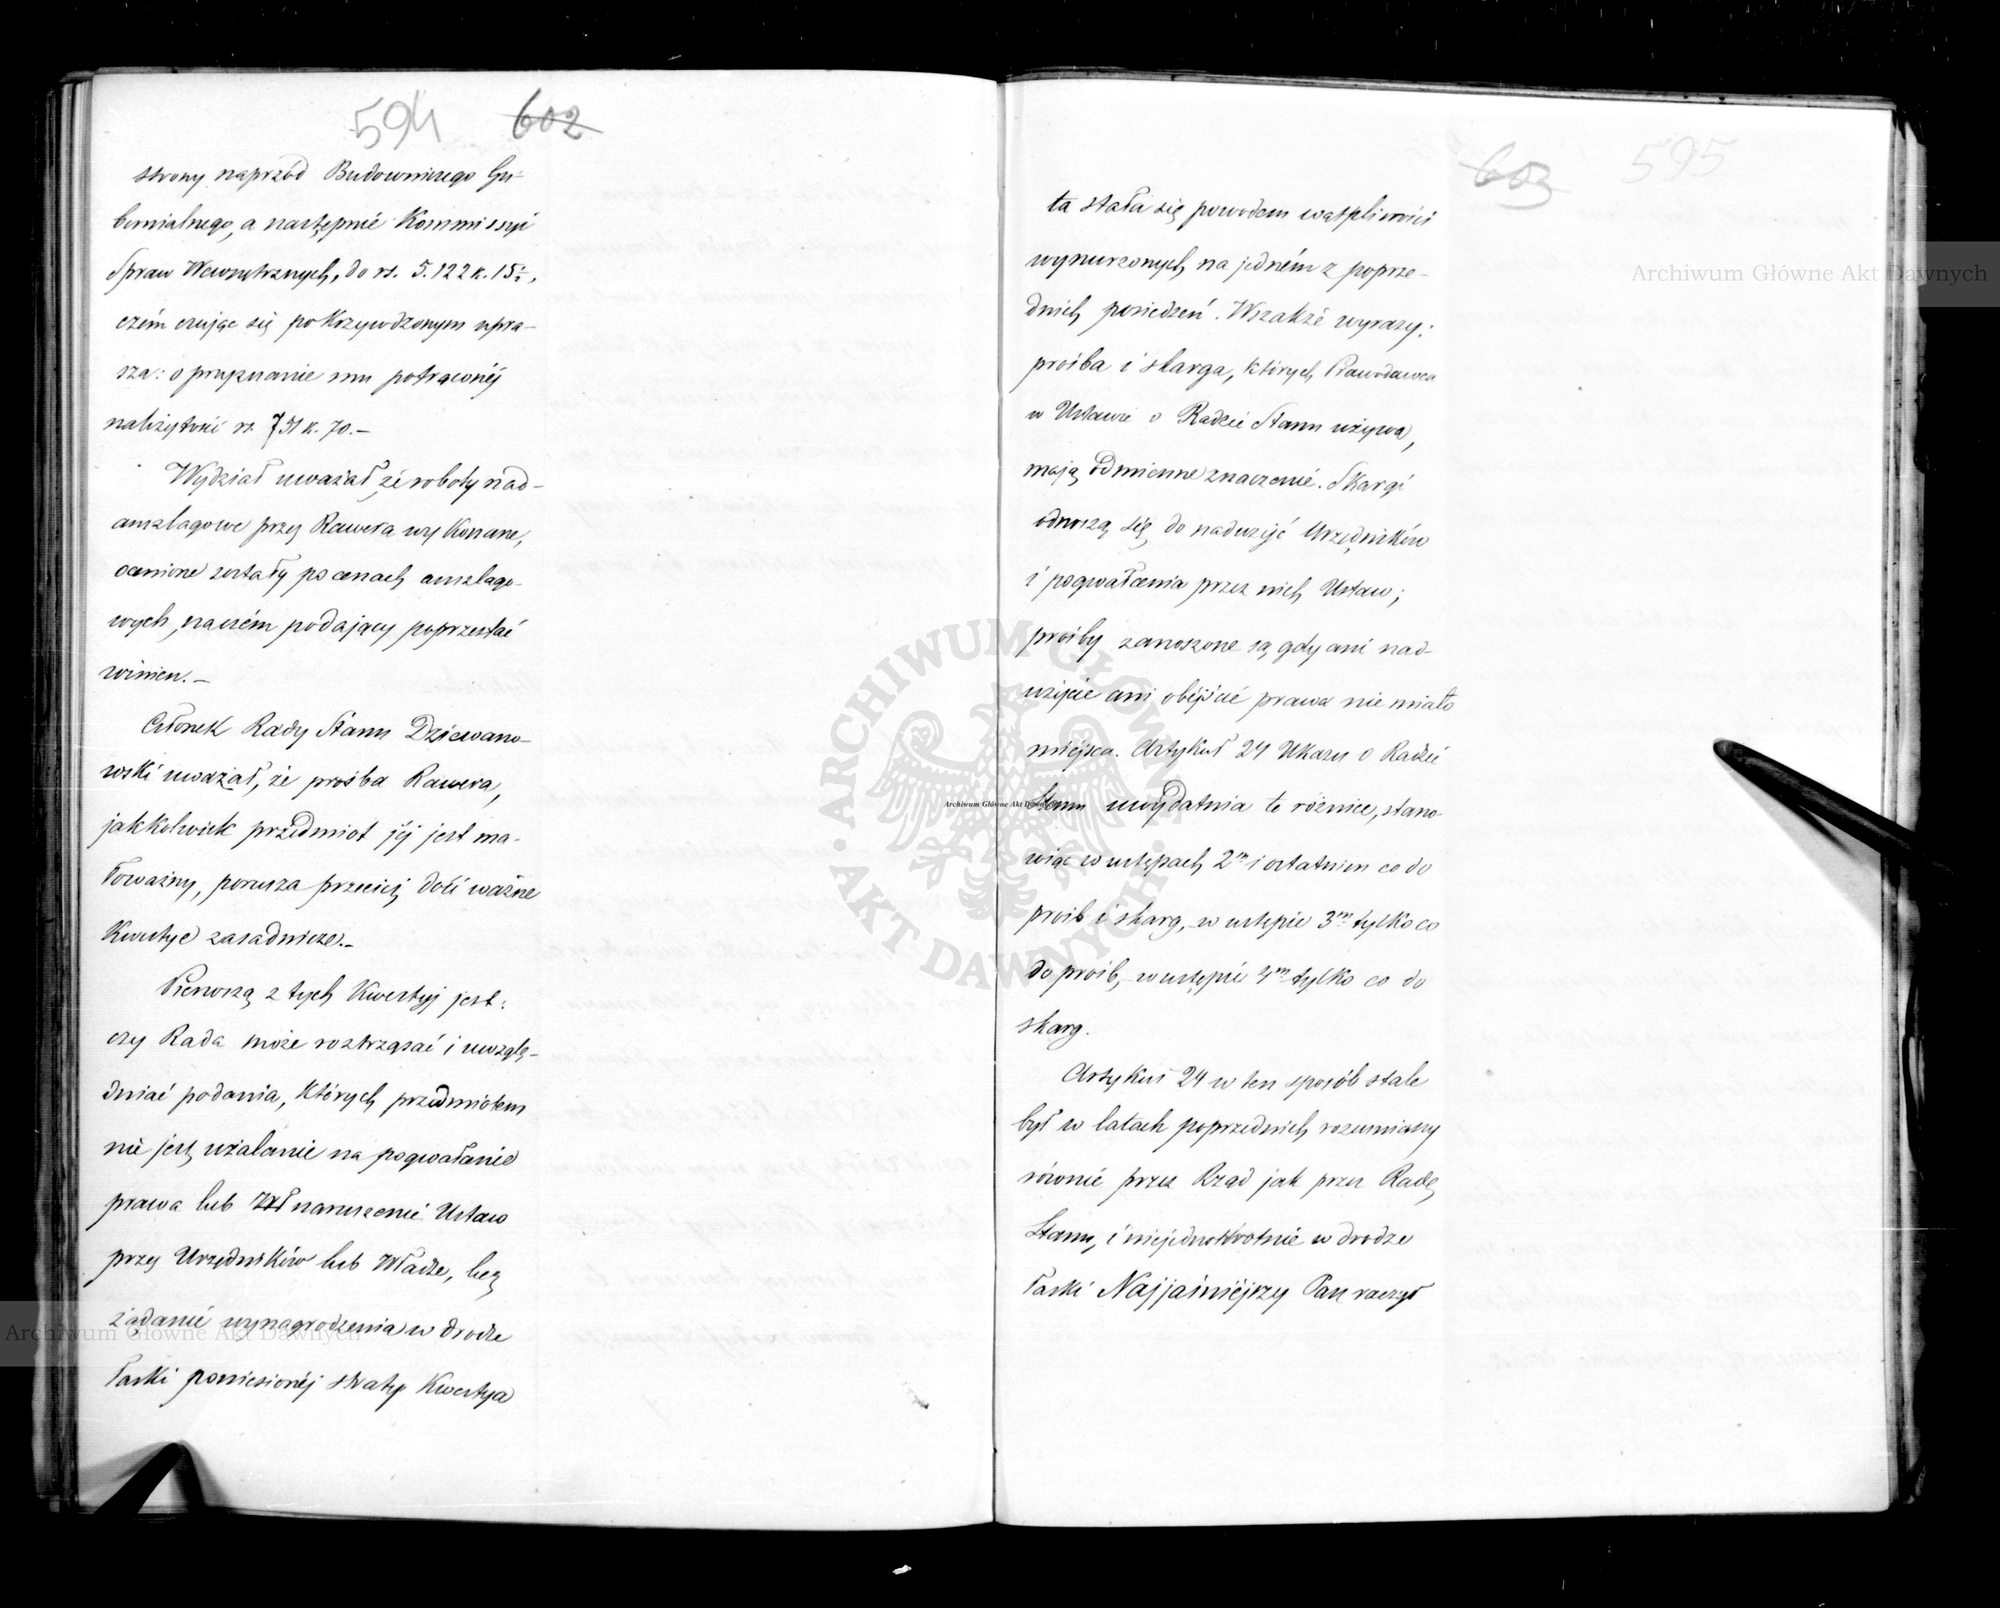 594 602
strony naprzód Budowniczego Gu-
bernialnego, a następnie Kommissyi
Spraw Wewnętrznych, do rs. 5.122 k. 15½,
czém czując się pokrzywdzonym upra-
sza: o przyznanie mu potrąconéj
należytości rs. 751 k. 70.-
Wydział uważał, że roboty nad-
anszlagowe przez Rawera wykonane,
ocenione zostały po cenach anszlago-
wych, na czém podający poprzestać
winien.-
Członek Rady Stanu Dziewano-
wski uważał, że prośba Rawera,
jakkolwiek przedmiot jéj jest ma-
łoważny, porusza przecież dość ważne
Kwestye zasadnicze.-
Pierwszą z tych Kwestyj jest:
czy Rada może roztrząsać i uwzglę-
dniać podania, których przedmiotem
nie jest użalanie na pogwałcenie
prawa lub naruszenie Ustaw
przez Urzędników lub Władze, lecz
żądanie wynagrodzenia w drodze
łaski poniesionéj straty. Kwestya
603 595
ta stała się powodem wątpliwości
wynurzonych na jedném z poprze-
dnich posiedzeń. Wszakże wyrazy:
prośba i skarga, których Prawodawca
w Ustawie o Radzie Stanu używa,
mają odmienne znaczenie. Skargi
odnoszą się do nadużyć Urzędników
i pogwałcenia przez nich Ustaw;
prośby zanoszone są, gdy ani nad-
użycie ani obejście prawa nie miało
miejsca. Artykuł 24 Ukazu o Radzie
Stanu uwydatnia te różnice, stano-
wiąc w ustępach 2m i ostatnim co do
prośb i skarg, w ustępie 3m tylko co
do prośb, w ustępie 4m tylko co do
skarg.
Artykuł 24 w ten sposób stale
był w latach poprzednich rozumiany
równie przez Rząd jak przez Radę
Stanu, i niejednokrotnie w drodze
łaski Najjaśniéjszy Pan raczył
Archiwum Główne Akt Dawnych
Archiwum Główne Akt Dawnych
Archiwum Główne Akt Dawnych
ARCHIWUM GŁÓWNE AKT DAWNYCH